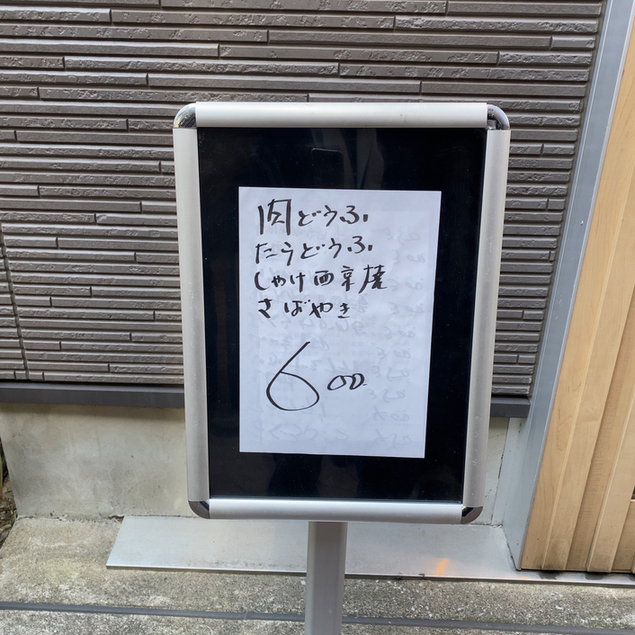 肉どうふ
たらどうふ
しゃけ西京焼
さばやき
600